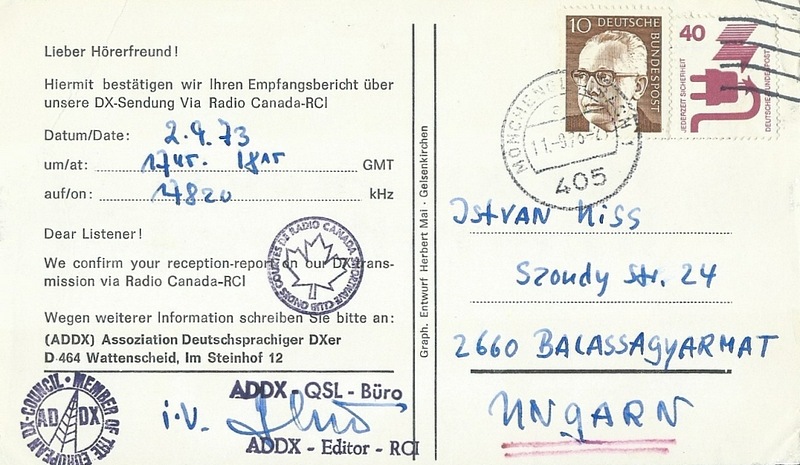 Lieber Hörerfreund!
Hiermit bestätigen wir Ihren Empfangsbericht über
unsere DX-Sendung Via Radio Canada-RCI
Datum/Date: 2.9.73
um/at: 1745. 1815 GMT
auf/on: 17820 kHz
Dear Listener!
We confirm your reception-report on our DX-trans-
mission via Radio Canada-RCI
ONDES COURTES DE RADIO CANADA SHORTWAVE CLUB
Wegen weiterer Information schreiben Sie bitte an:
(ADDX) Assoziation Deutschsprachiger DXer
D-464 Wattenscheid, Im Steinhof 12
MEMBER OF THE EUROPEAN DX-COUNCIL
ADDX
ADDX - QSL - Büro
i.V.
ADDX - Editor - RCI
Graph. Entwurf Herbert Mai · Gelsenkirchen
10 DEUTSCHE BUNDESPOST
40
JEDERZEIT SICHERHEIT
DEUTSCHE BUNDESPOST
405
ISTVAN KISS
Szondy str. 24
2660 BALASSAGYARMAT
UNGARN